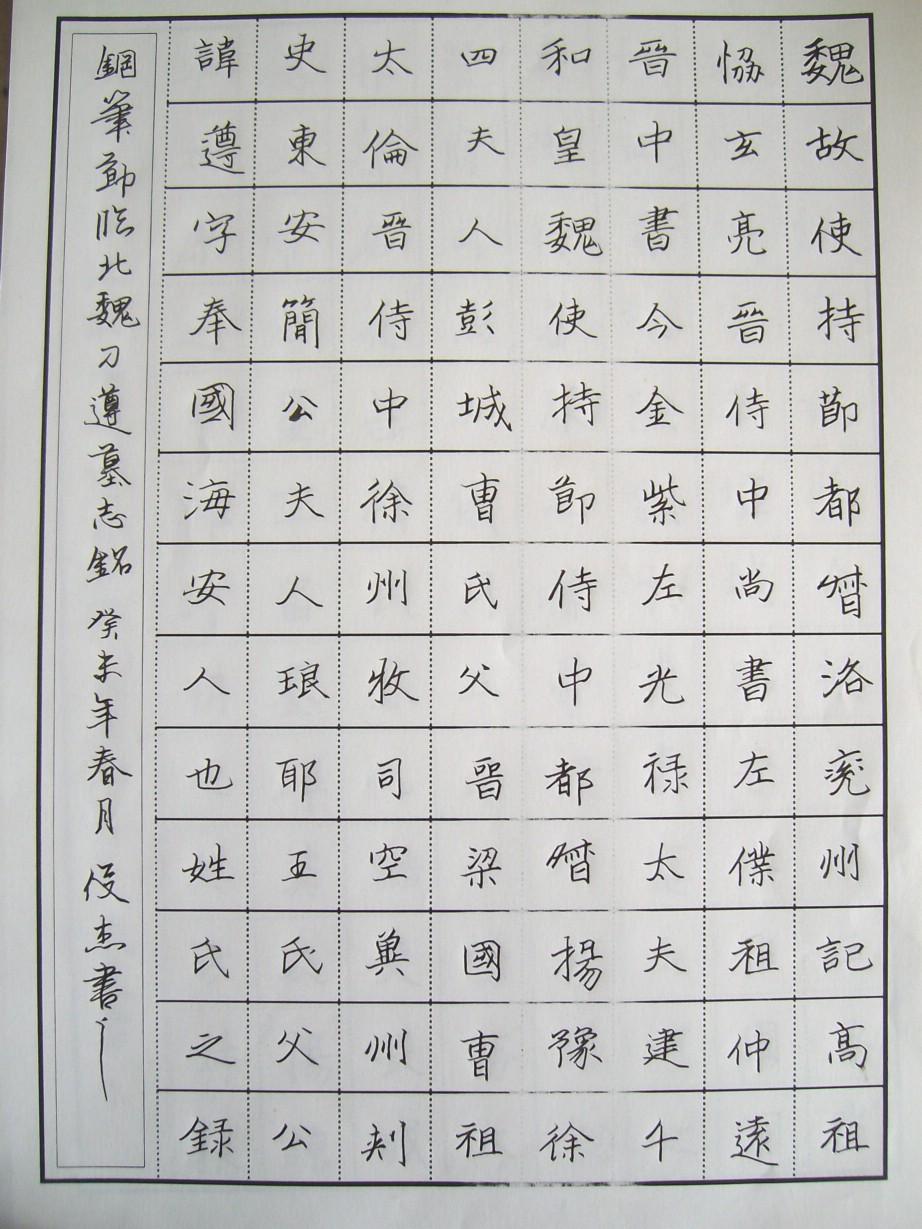 魏故使持節都督洛兗州記高祖
恊玄亮晉侍中尚書左僕祖仲遠
晉中書令金紫左光禄太夫建午
和皇魏使持節侍中都督揚豫徐
四夫人彭城曹氏父晉梁國曹祖
太倫晉侍中徐州牧司空兾州刾
史東安簡公夫人琅耶王氏父公
諱遵字奉國海安人也姓氏之録
鋼筆節臨北魏刀遵墓志銘 癸未年春月 俊杰書